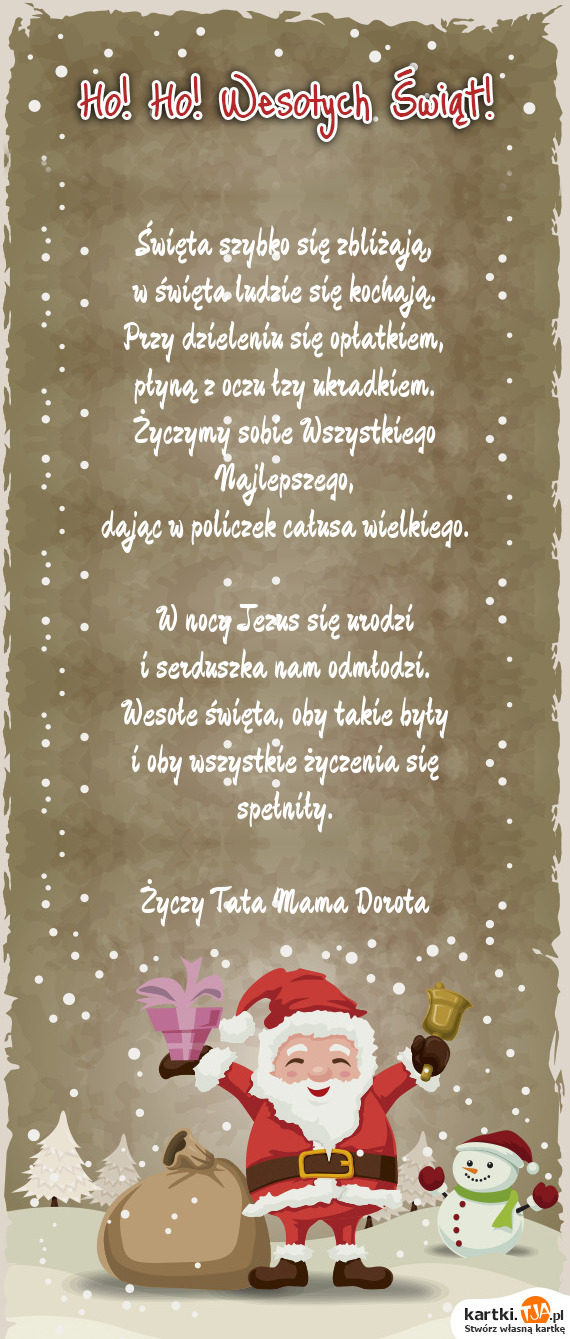 Ho! Ho! Wesołych Świąt!
Święta szybko się zbliżają,
w święta ludzie się kochają.
Przy dzieleniu się opłatkiem,
płyną z oczu łzy ukradkiem.
Życzymy sobie Wszystkiego
Najlepszego,
dając w policzek całusa wielkiego.
W nocy Jezus się urodzi
i serduszka nam odmłodzi.
Wesołe święta, oby takie były
i oby wszystkie życzenia się
spełniły.
Życzy Tata Mama Dorota
kartki.TJA.pl
Stwórz własną kartkę